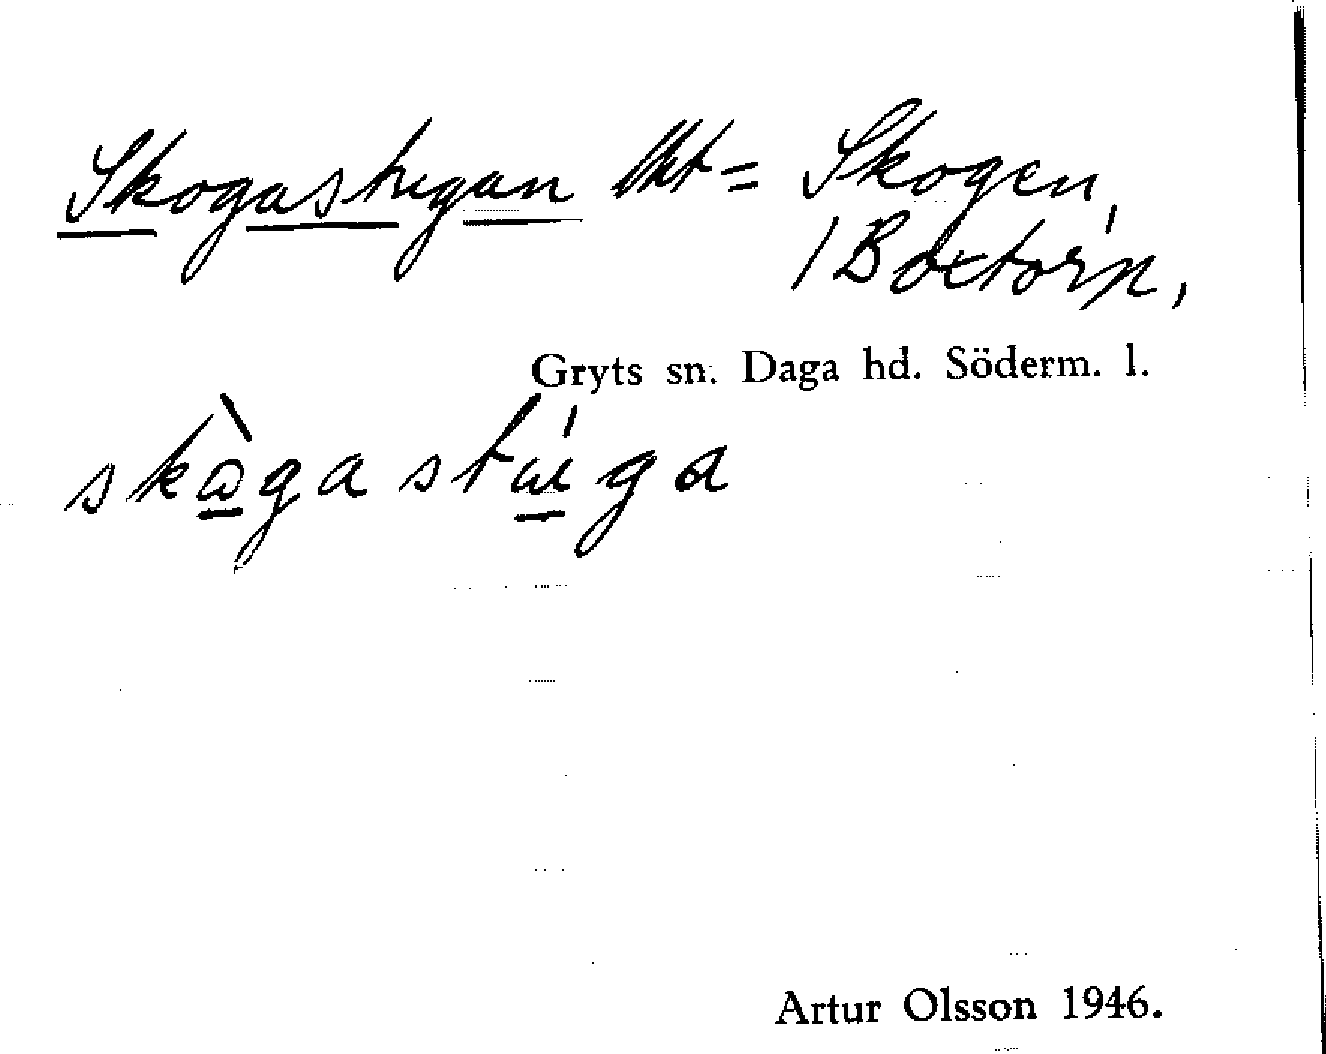 Skogastugan lht = Skogen,
/ Boxtorp,
Gryts sn. Daga hd. Söderm. l.
skògastúga
Artur Olsson 1946.